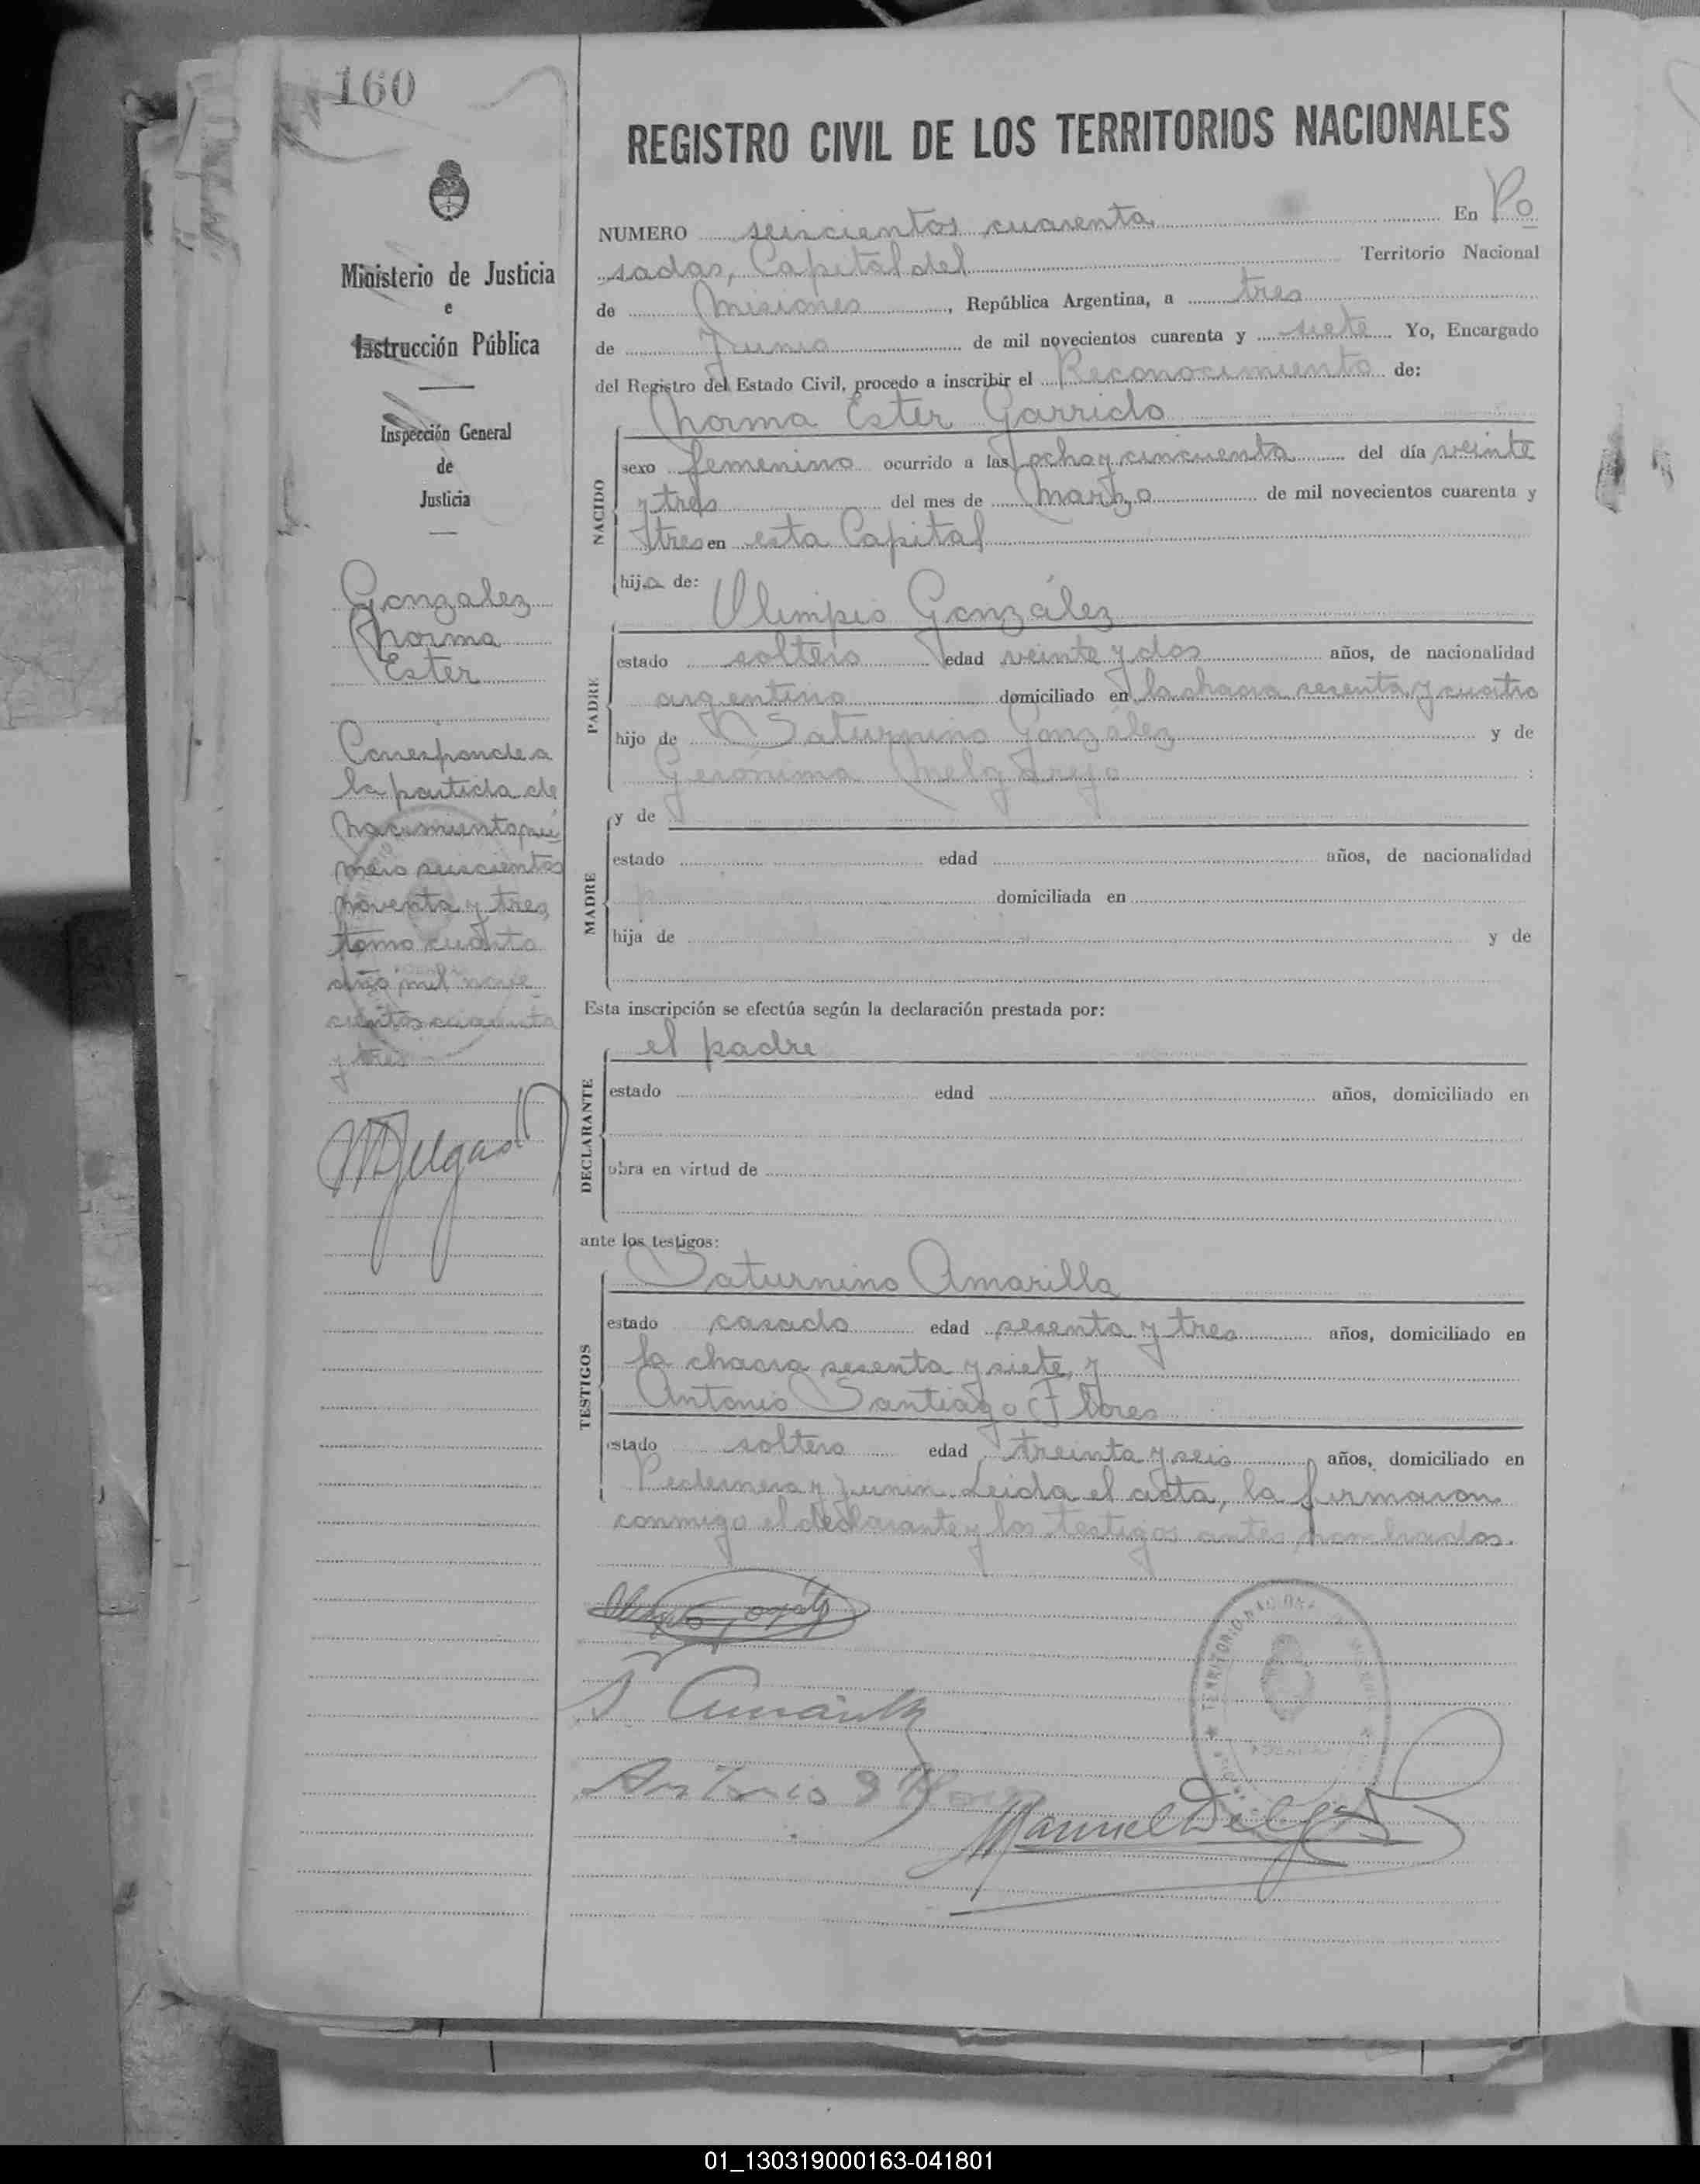 160
Ministerio de Justicia
e
Instrucción Pública
Inspección General
de
Justicia
Gonzalez
Norma
Ester
Corresponde a
la partida de
nacimiento nú
mero seiscientos
noventa y tres
tomo cuarto
año mil nove
cientos cuarenta
y tres
REGISTRO CIVIL DE LOS TERRITORIOS NACIONALES
NUMERO seiscientos cuarenta En Po
sadas, Capital del Territorio Nacional
de Misiones, República Argentina, a tres
de Junio de mil novecientos cuarenta y siete Yo, Encargado
del Registro del Estado Civil, procedo a inscribir el Reconocimiento de:
Norma Ester Garrido
NACIDO
sexo femenino ocurrido a las ocho y cincuenta del día veinte
y tres del mes de Marzo de mil novecientos cuarenta y
tres en esta Capital
hija de:
Olimpio González
PADRE
estado soltero edad veinte y dos años, de nacionalidad
argentino domiciliado en la chacra sesenta y cuatro
hijo de Saturnino González y de
Gerónima Melgarejo
MADRE
y de
estado edad años, de nacionalidad
domiciliada en
hija de y de
Esta inscripción se efectúa según la declaración prestada por:
el padre
DECLARANTE
estado edad años, domiciliado en
obra en virtud de
ante los testigos:
Saturnino Amarilla
TESTIGOS
estado casado edad sesenta y tres años, domiciliado en
la chacra sesenta y siete, y
Antonio Santiago Flores
estado soltero edad treinta y seis años, domiciliado en
Pedernera y Junin. Leida el acta, la firmaron
conmigo el declarante y los testigos antes nombrados.
S Amarilla
Antonio S Flores
TERRITORIO NACIONAL DE MISIONES
Manuel Delgado
01_130319000163-041801